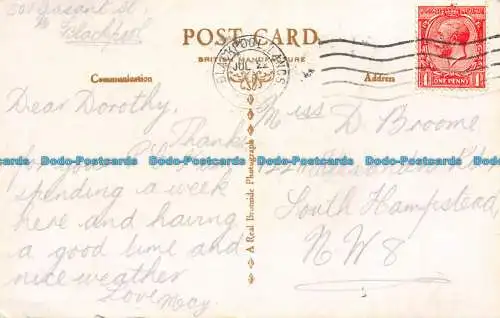 Blackpool
POST CARD
BRITISH MANUFACTURE
BLACKPOOL LANCS
JUL 22
Communication
Address
ONE PENNY
Dear Dorothy,
Thanks
for your
spending a week
here and having
a good time and
nice weather
Love
May.
A Real Bromide Photograph
Miss D Broome
Rd
South Hampstead
NW8
Dodo-Postcards Dodo-Postcards Dodo-Postcards Dodo-Postcards Dodo-Postcards